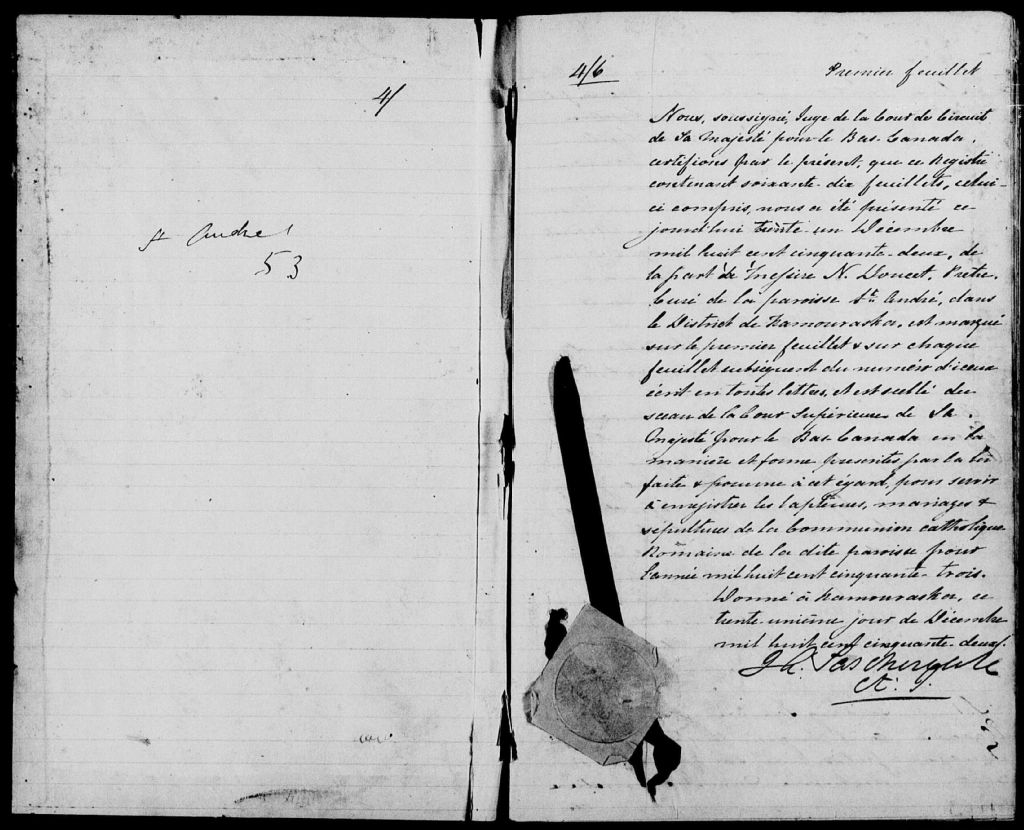 4/
St André
53
4/6
Premier feuillet
Nous, soussigné, Juge de la Cour de Circuit
de Sa Majesté pour le Bas-Canada,
certifions par le présent, que ce Registre
contenant soixante-dix feuillets, celui-
ci compris, nous a été présenté ce
jourd'hui trente un Décembre
mil huit cent cinquante-deux, de
la part de Messire N. Doucet, Prêtre,
Curé de la paroisse St. André, dans
le District de Kamouraska, est marqué
sur le premier feuillet & sur chaque
feuillet subséquent du numéro d'iceux
écrit en toutes lettres, et est scellé du
sceau de la Cour Supérieure de Sa
Majesté pour le Bas-Canada en la
manière et forme prescrites par la loi
faite & pourvue à cet égard, pour servir
à enregistrer les baptêmes, mariages &
sépultures de la Communion Catholique
Romaine de la dite paroisse pour
l'année mil huit cent cinquante-trois.
Donné à Kamouraska, ce
trente-unième jour de Décembre
mil huit cent cinquante-deux.
Taschereau